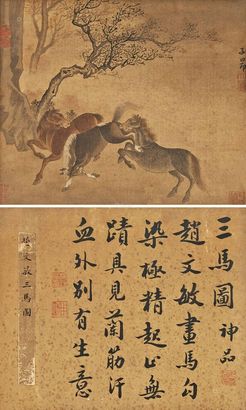 三馬圖 神品
趙文敏畫馬勾
染極精起止無
蹟具見蘭筋汗
血外別有生意
文敏三馬圖